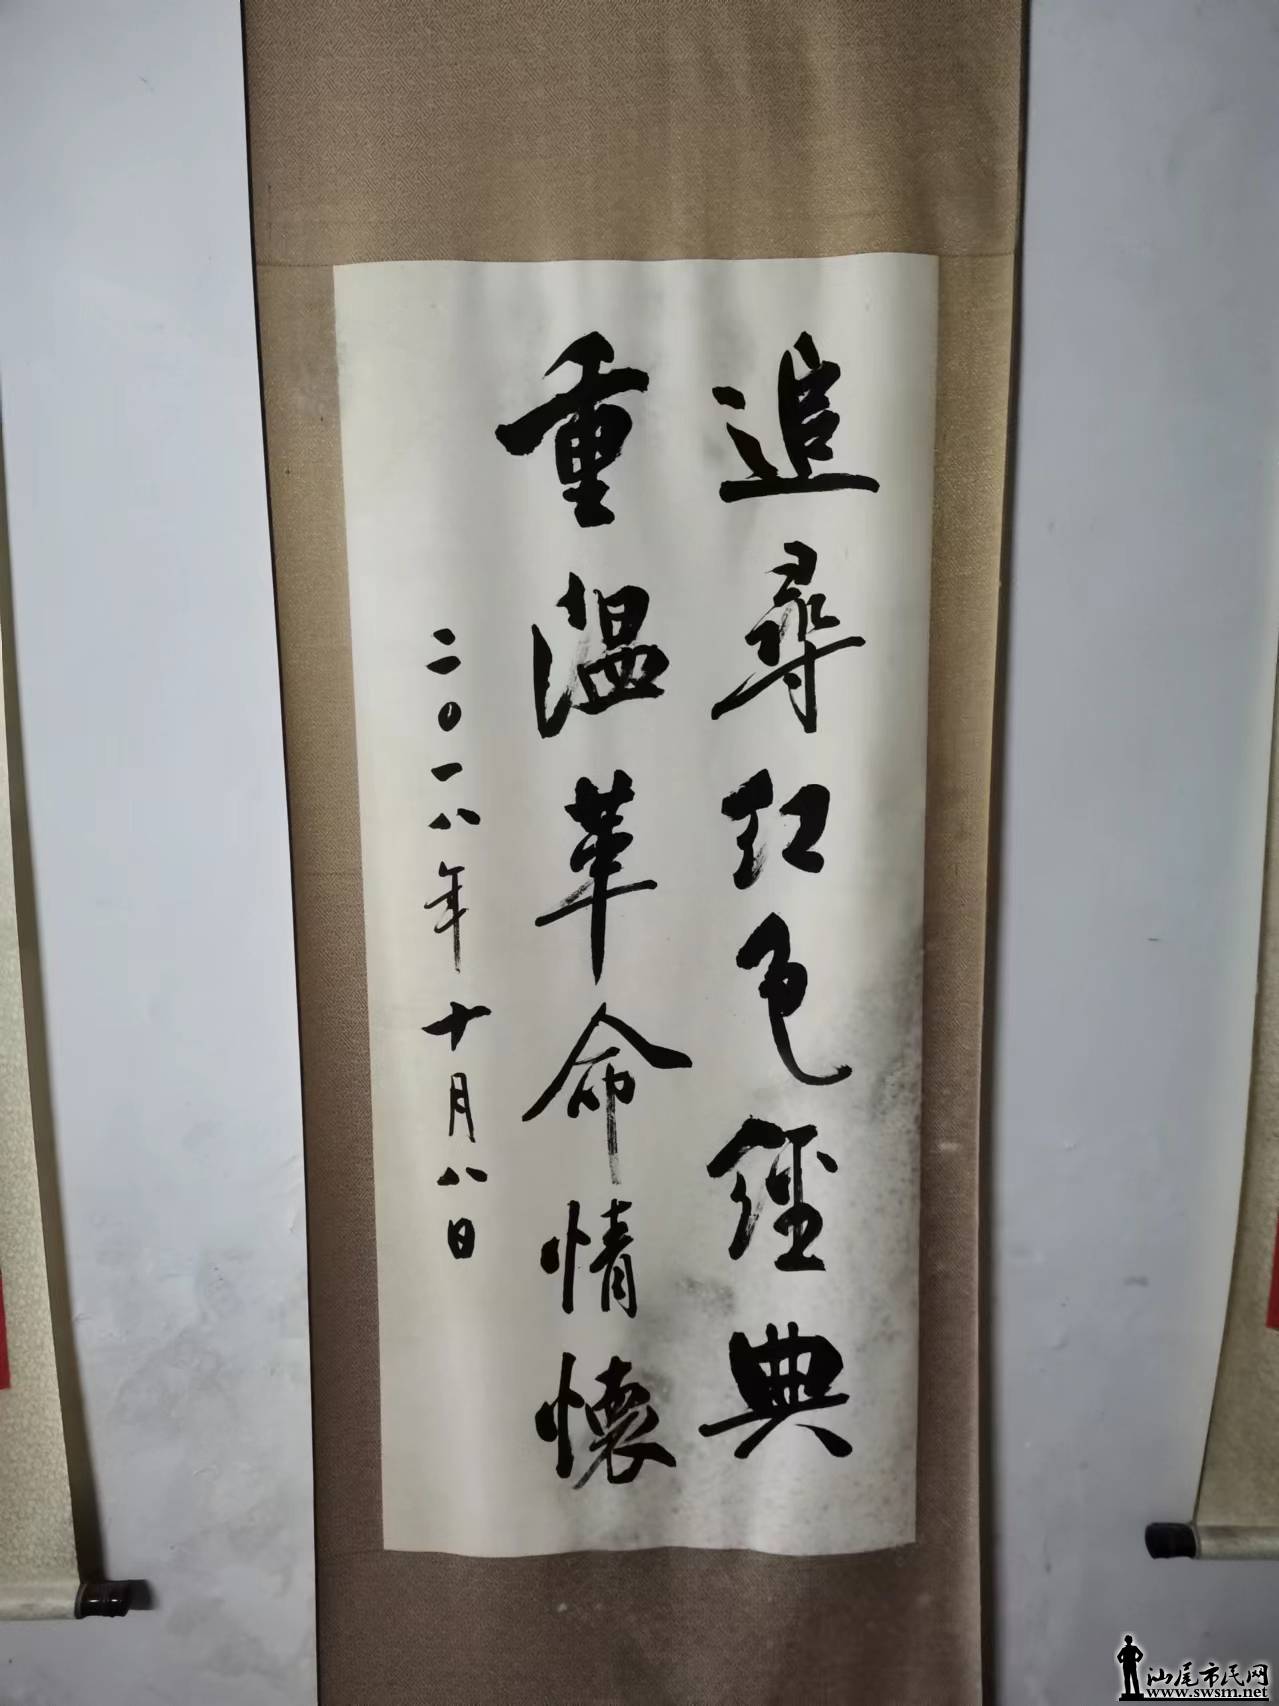 追尋红色經典
重温革命情懷
二〇一八年十月八日
汕尾市民网
www.swsm.net